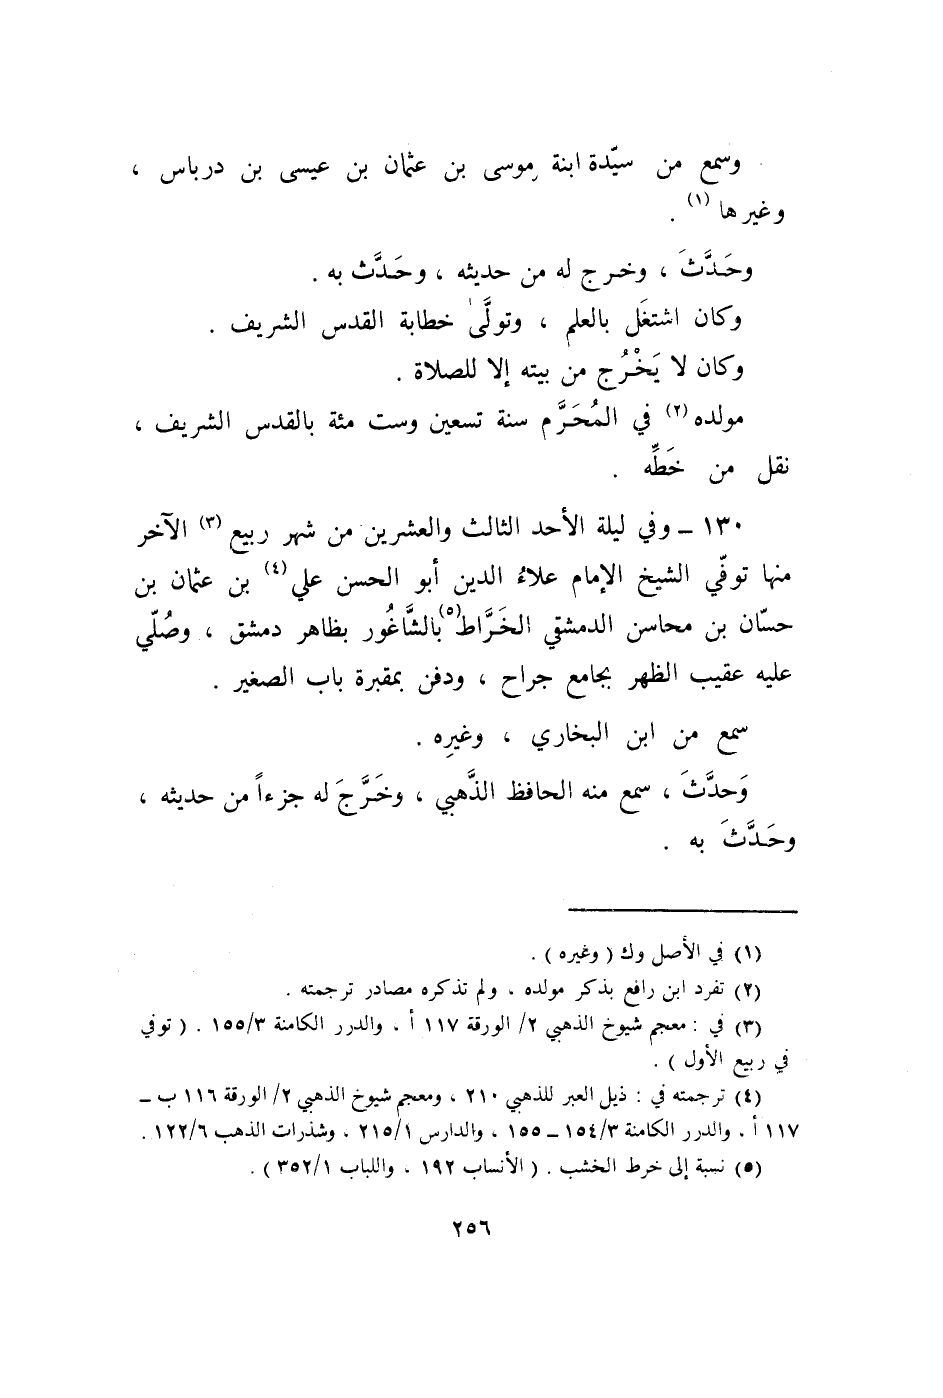 وسمع من سيّدة ابنة موسى بن عثمان بن عيسى بن درباس ،
وغيرها (١) .
وحَدَّثَ ، وخرج له من حديثه ، وحَدَّث به .
وكان اشتغَل بالعلم ، وتولَّىٰ خطابة القدس الشريف .
وكان لا يَخْرُج من بيته إلا للصلاة .
مولده (٢) في المُحَرَّم سنة تسعين وست مئة بالقدس الشريف ،
نقل من خَطِّه .
١٣٠ ـ وفي ليلة الأحد الثالث والعشرين من شهر ربيع (٣) الآخر
منها توفّي الشيخ الإمام علاءُ الدين أبو الحسن علي (٤) بن عثمان بن
حسّان بن محاسن الدمشقي الخَرَّاط (٥) بالشَّاغُور بظاهر دمشق ، وصُلّي
عليه عقيب الظهر بجامع جراح ، ودفن بمقبرة باب الصغير .
سمع من ابن البخاري ، وغيرِه .
وَحدَّثَ ، سمع منه الحافظ الذَّهبي ، وخَرَّجَ له جزءاً من حديثه ،
وحَدَّثَ به .
(١) في الأصل وك ( وغيره ) .
(٢) تفرد ابن رافع بذكر مولده ، ولم تذكره مصادر ترجمته .
(٣) في : معجم شيوخ الذهبي ٢/ الورقة ١١٧ أ ، والدرر الكامنة ١٥٥/٣ . ( توفي
في ربيع الأول ) .
(٤) ترجمته في : ذيل العبر للذهبي ٢١٠ ، ومعجم شيوخ الذهبي ٢/ الورقة ١١٦ ب ـ
١١٧ أ ، والدرر الكامنة ١٥٤/٣ ـ ١٥٥ ، والدارس ٢١٥/١ ، وشذرات الذهب ١٢٢/٦ .
(٥) نسبة إلى خرط الخشب . ( الأنساب ١٩٢ ، واللباب ٣٥٢/١ ) .
٢٥٦